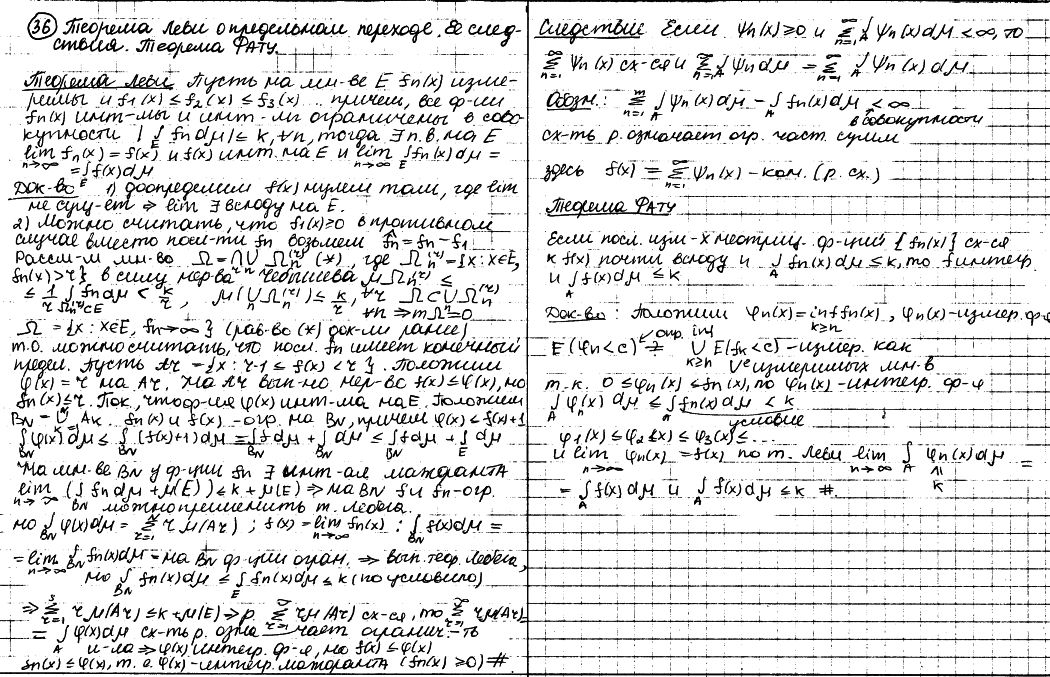 36 Теорема Леви о предельном переходе. Ее след-
ствия. Теорема Фату.
Теорема Леви. Пусть на мн-ве E fn(x) изме-
римы и f1(x) ≤ f2(x) ≤ f3(x)... причем, все ф-ии
fn(x) инт-мы и инт-лы ограничены в сово-
купности |∫_E fn dμ| ≤ k, ∀n, тогда ∃ п.в. на E
lim_{n→∞} fn(x) = f(x) и f(x) инт. на E и lim_{n→∞} ∫_E fn(x)dμ =
= ∫_E f(x)dμ
Док-во 1) доопределим f(x) нулем там, где lim
не сущ-ет ⇒ lim ∃ всюду на E.
2) Можно считать, что f1(x)≥0 в противном
случае вместо посл-ти fn возьмем f̃n = fn - f1
Рассм-м мн-во Ω = ∩_r ∪_n Ω_n^(r) (*), где Ω_n^(r) = {x: x∈E,
fn(x) > r} в силу нер-ва Чебышева μΩ_n^(r) ≤
≤ 1/r ∫_{Ω_n^(r)⊂E} fn dμ < k/r, μ(∪_n Ω_n^(r)) ≤ k/r, ∀r Ω ⊂ ∪_n Ω_n^(r)
∀r ⇒ mΩ=0
Ω = {x: x∈E, fn→∞} (рав-во (*) док-ли ранее)
т.о. можно считать, что посл. fn имеет конечный
предел. Пусть Ar = {x: r-1 ≤ f(x) < r}. Положим
φ(x) = r на Ar. На Ar вып-но нер-во f(x) ≤ φ(x), но
fn(x) ≤ r. Док. что ф-ия φ(x) инт-ма на E. Положим
B_N = ∪_{k=1}^N A_k. fn(x) и f(x) - огр. на B_N, причем φ(x) ≤ f(x)+1
∫_{B_N} φ(x)dμ ≤ ∫_{B_N} (f(x)+1)dμ = ∫_{B_N} f dμ + ∫_{B_N} dμ ≤ ∫_{B_N} f dμ + ∫_E dμ
На мн-ве B_N у ф-ции fn ∃ инт-ал мажоранта
lim_{n→∞} (∫_{B_N} fn dμ + μ(E)) ≤ k + μ(E) ⇒ на B_N f и fn - огр.
можно применить т. Лебега.
но ∫_{B_N} φ(x)dμ = Σ_{r=1}^N r μ(Ar); f(x) = lim_{n→∞} fn(x): ∫_{B_N} f(x)dμ =
= lim_{n→∞} ∫_{B_N} fn(x)dμ = на B_N ф-ции огран. ⇒ вып. теор. Лебега,
но ∫_{B_N} fn(x)dμ ≤ ∫_E fn(x)dμ ≤ k (по условию)
⇒ Σ_{r=1}^s r μ(Ar) ≤ k + μ(E) ⇒ р. Σ_{r=1}^∞ r μ(Ar) сх-ся, то Σ_{r=1}^∞ r μ(Ar) =
= ∫_A φ(x)dμ сх-ть р. означает огранич-ть
и-ла ⇒ φ(x) интегр. ф-я, но f(x) ≤ φ(x)
fn(x) ≤ φ(x), т.е. φ(x) - интегр. мажоранта (fn(x) ≥ 0) #
Следствие Если ψn(x) ≥ 0 и Σ_{n=1}^∞ ∫_A ψn(x)dμ < ∞, то
Σ_{n=1}^∞ ψn(x) сх-ся и Σ_{n=1}^∞ ∫_A ψn dμ = Σ_{n=1}^∞ ∫_A ψn(x)dμ.
Обозн.: Σ_{n=1}^m ∫_A ψn(x)dμ - ∫_A fn(x)dμ < ∞
в совокупности
сх-ть р. означает огр. част. сумм
здесь f(x) = Σ_{n=1}^∞ ψn(x) - кон. (р. сх.)
Теорема Фату
Если посл. изм-х неотриц. ф-ций {fn(x)} сх-ся
к f(x) почти всюду и ∫_A fn(x)dμ ≤ k, то f интегр.
и ∫_A f(x)dμ ≤ k
Док-во: Положим φn(x) = inf_{k≥n} fn(x), φn(x) - измер. ф-я
опр. inf
E(φn<c) = ∪_{k≥n} E(fn<c) - измер. как
∪ измеримых мн-в
т.к. 0 ≤ φn(x) ≤ fn(x), то φn(x) - интегр. ф-я
∫_A φn(x)dμ ≤ ∫_A fn(x)dμ < k
условие
φ1(x) ≤ φ2(x) ≤ φ3(x) ≤ ...
и lim_{n→∞} φn(x) = f(x) по т. Леви lim_{n→∞} ∫_A φn(x)dμ =
≤ k
= ∫_A f(x)dμ и ∫_A f(x)dμ ≤ k #